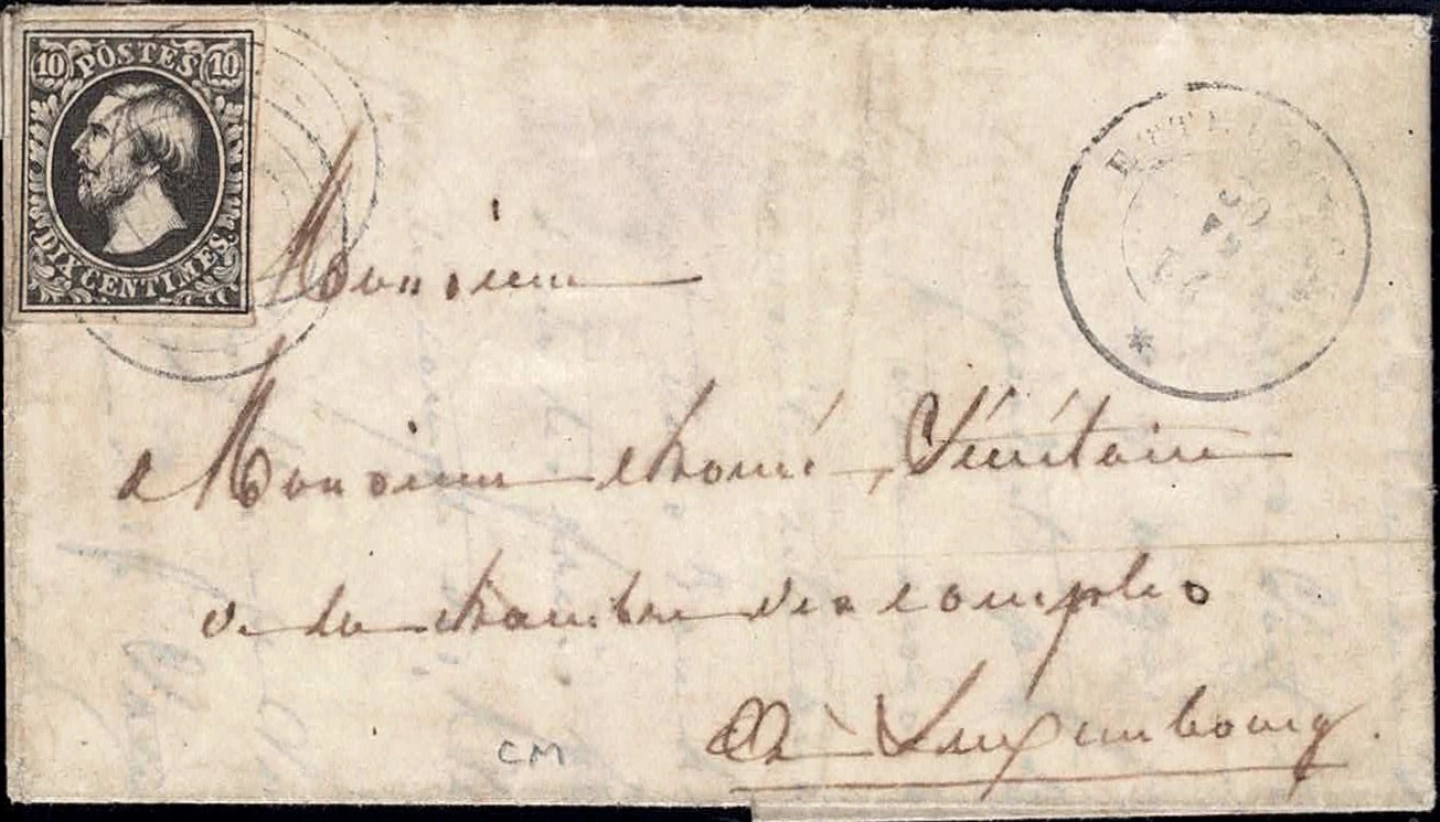 10 POSTES 10
DIX CENTIMES
Monsieur
a Monsieur Chomé, Sécrétaire
de la chambre des comptes
à Luxembourg.
CM